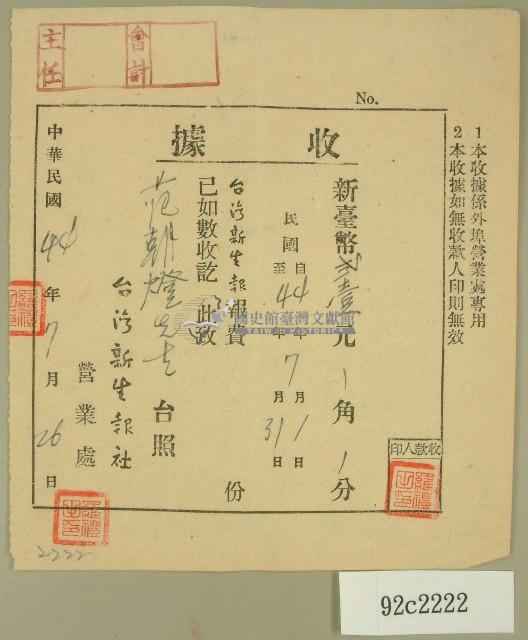 主任
會計
No.
1 本收據係外埠營業處專用
2 本收據如無收款人印則無效
收據
新臺幣 壹元 角 分
民國 自44年7月1日
至44年7月31日
台湾新生報 報費 份
已如數收訖 此致
范朝燈先生 台照
台湾新生報社
營業處
中華民國44年7月26日
收款人印
國史館臺灣文獻館
TAIWAN HISTORICA
2222
92c2222